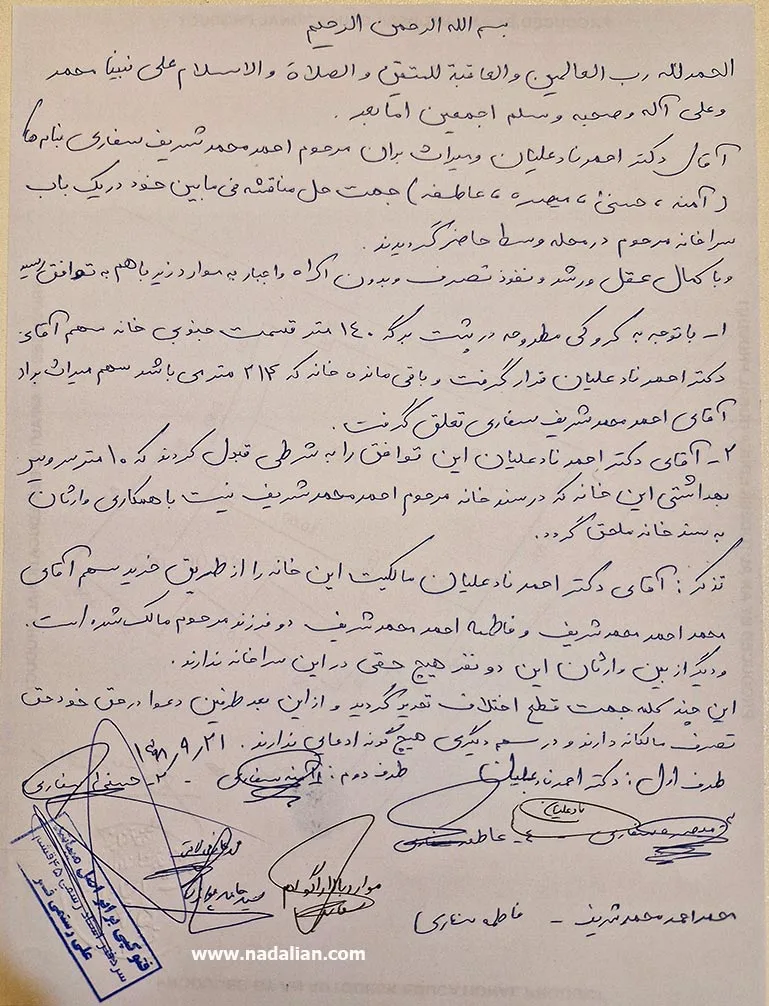 بسم الله الرحمن الرحیم
الحمدلله رب العالمین والعاقبة للمتقین والصلاة والاسلام علی نبینا محمد
وعلی آله وصحبه وسلم اجمعین امابعد .
آقای دکتر احمد نادعلیان و میراث بران مرحوم احمد محمد شریف سفاری بنام ها
(آمنه ، حسنیٰ ، میصره ، عاطفه) جهت حل مناقشه فی مابین خود در یک باب
سراخانه مرحوم در محله وسط حاضر گردیدند .
و با کمال عقل ورشد و نفوذ تصرف و بدون اکراه واجبار به موارد زیر باهم به توافق رسید
۱ـ باتوجه به کروکی مطروحه در پشت برگه ۱۴۰ متر قسمت جنوبی خانه سهم آقای
دکتر احمد نادعلیان قرار گرفت و باقی مانده خانه که ۲۱۴ متر می باشد سهم میراث براد
آقای احمد محمد شریف سفاری تعلق گرفت .
۲ـ آقای دکتر احمد نادعلیان این توافق را به شرطی قبول کردند که ۱۰ متر سرویس
بهداشتی این خانه که در سند خانه مرحوم احمد محمد شریف نیست با همکاری وارثان
به سند خانه ملحق گردد.
تذکر : آقای دکتر احمد نادعلیان مالکیت این خانه را از طریق خرید سهم آقای
محمد احمد محمد شریف و فاطمه احمد محمد شریف دو فرزند مرحوم مالک شده است .
و دیگر از بین وارثان این دو نفر هیچ حقی در این سراخانه ندارند .
این چند کلمه جهت قطع اختلاف تحریر گردید و از این بعد طرفین دعوا در حق خود حق
تصرف مالکانه دارند و در سهم دیگری هیچ گونه ادعایی ندارند . ۱۳۹۸/۹/۲۱
طرف اول : دکتر احمد نادعلیان طرف دوم : ۱ـ آمنه سفاری ـ ۲ـ حسنیٰ سفاری
نادعلیان
۳ـ میصره سفاری ۴ـ عاطفه سفاری
موارد بالا را گواهم
محمد احمد محمد شریف ـ فاطمه سفاری
فتوکپی برابر اصل میباشد
سردفتر اسناد رسمی ۴۵ قشم
علی رستمی قمر
www.nadalian.com